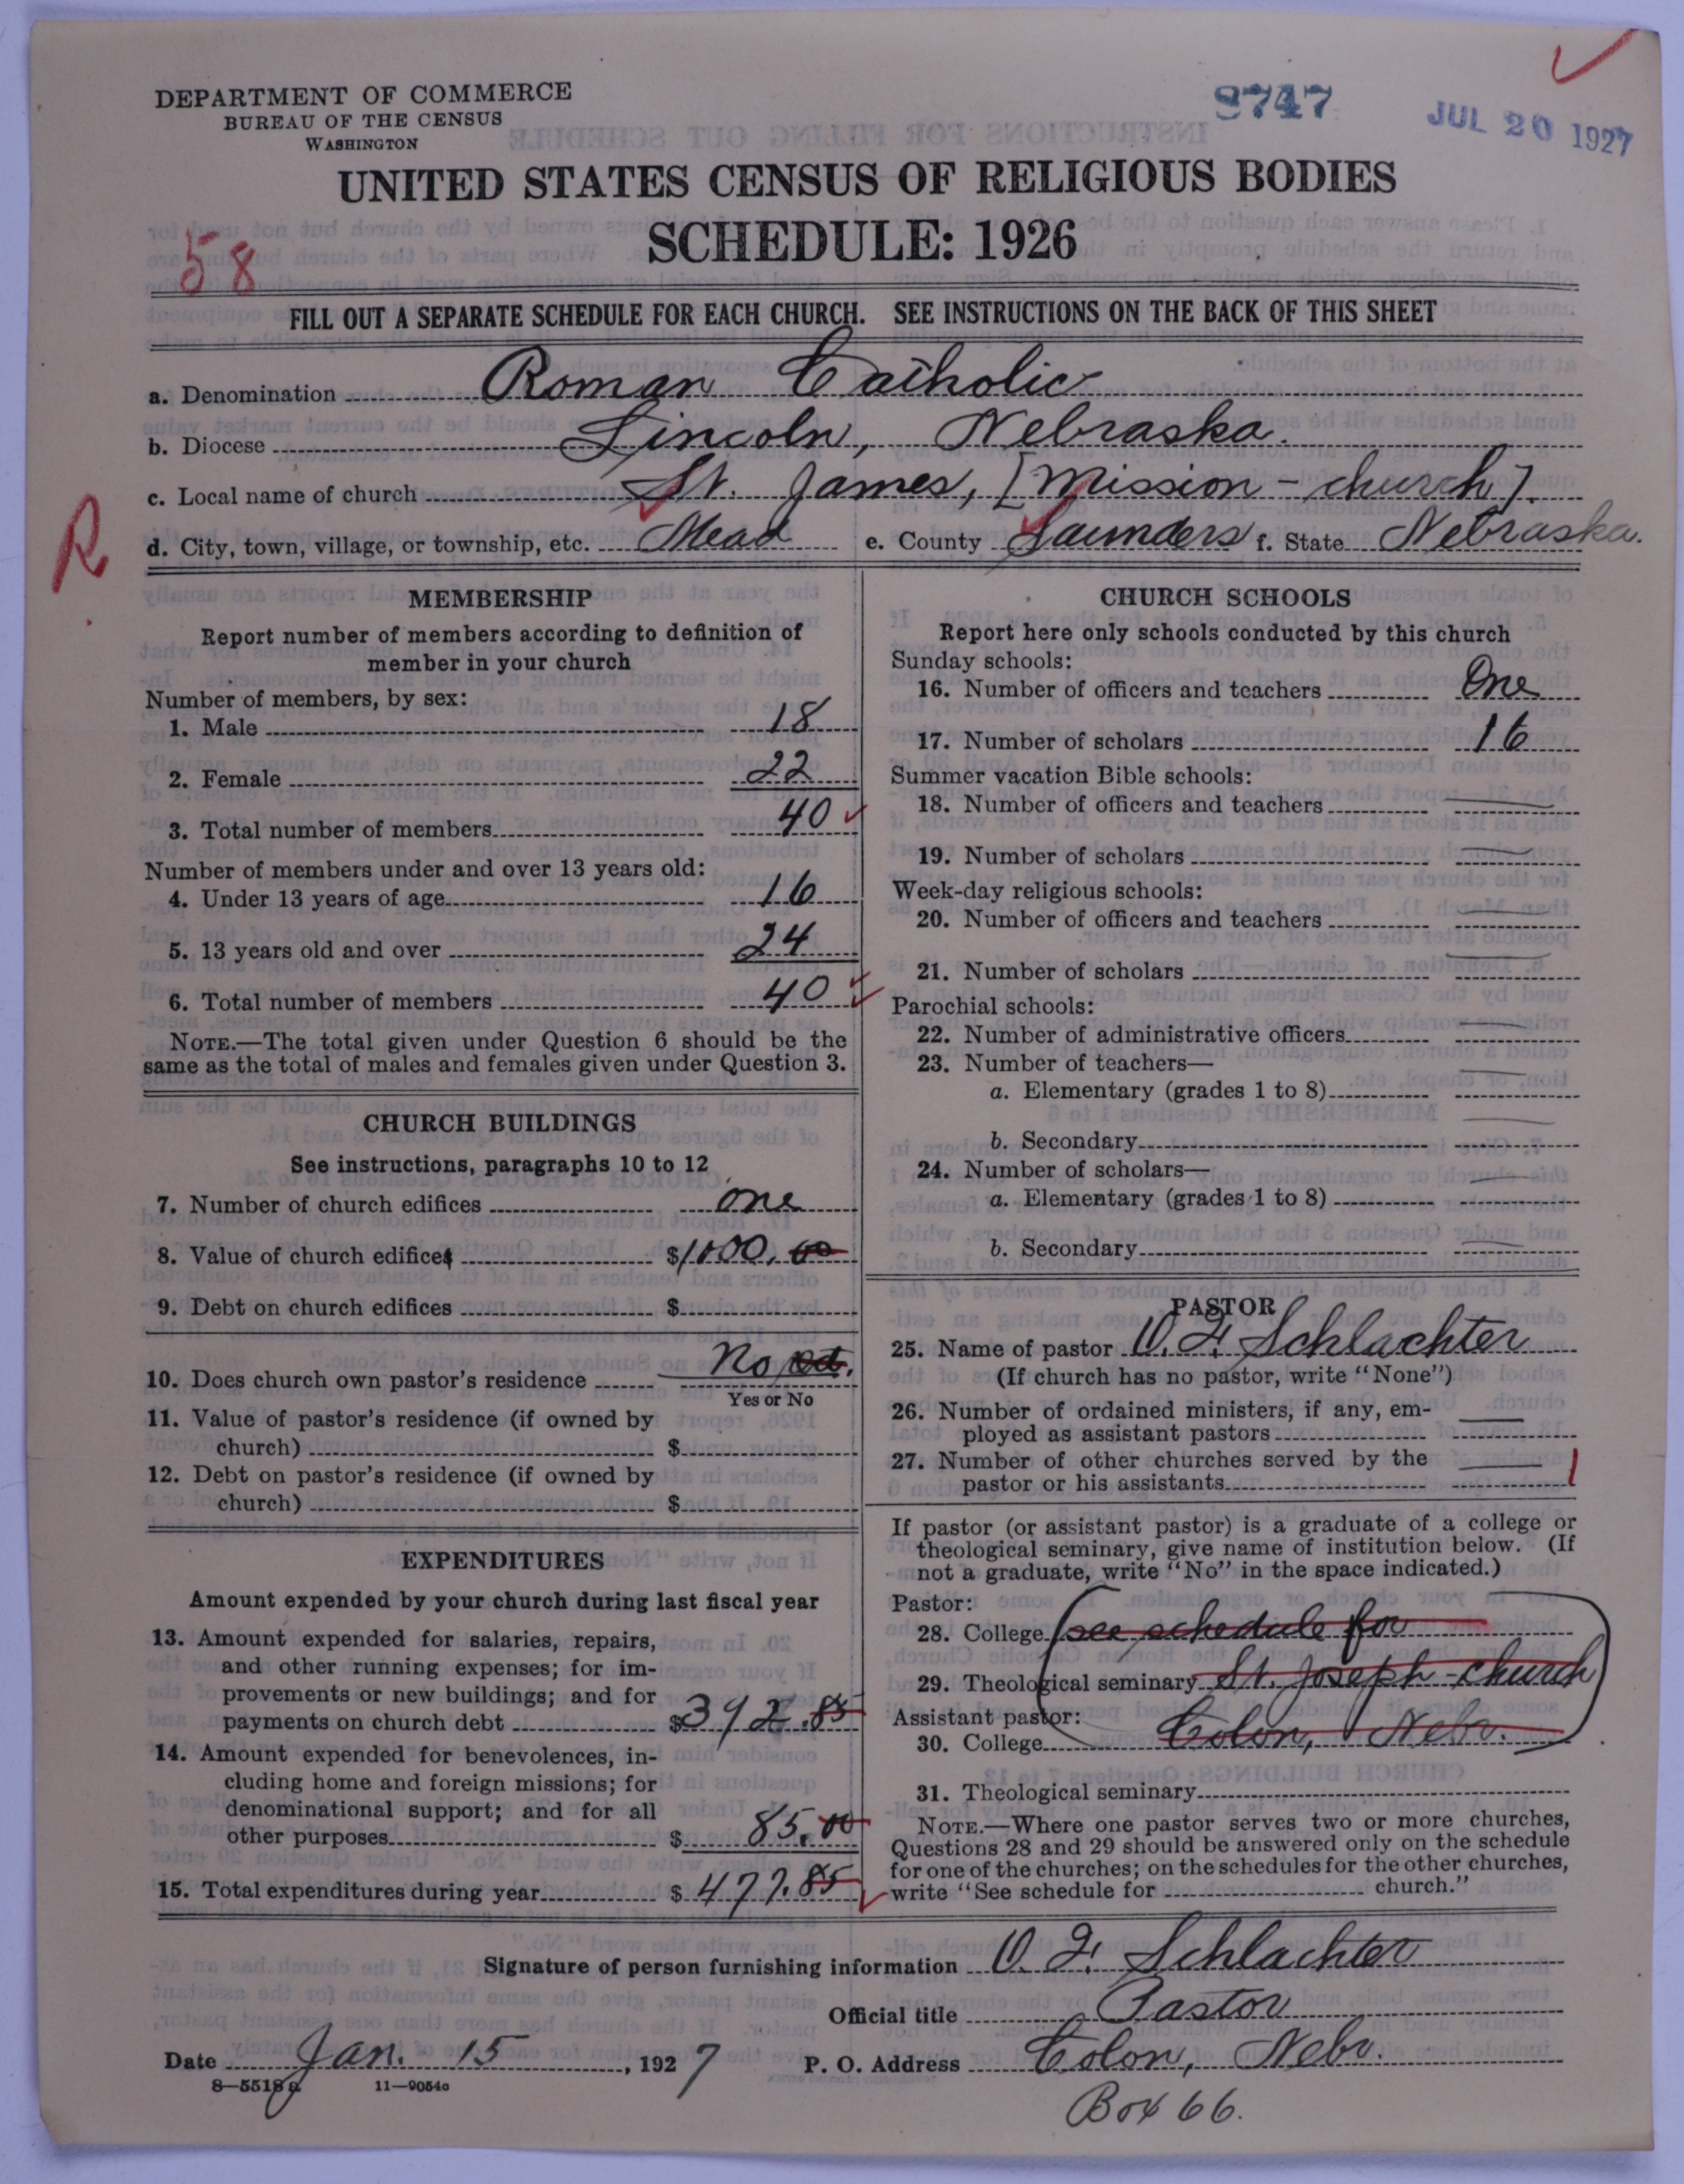 DEPARTMENT OF COMMERCE
BUREAU OF THE CENSUS
WASHINGTON
8747
JUL 20 1927
UNITED STATES CENSUS OF RELIGIOUS BODIES
SCHEDULE: 1926
58
FILL OUT A SEPARATE SCHEDULE FOR EACH CHURCH. SEE INSTRUCTIONS ON THE BACK OF THIS SHEET
a. Denomination Roman Catholic
b. Diocese Lincoln, Nebraska.
c. Local name of church St. James, [Mission - church].
R
d. City, town, village, or township, etc. Mead e. County Saunders f. State Nebraska.
MEMBERSHIP
Report number of members according to definition of
member in your church
Number of members, by sex:
1. Male 18
2. Female 22
3. Total number of members 40
Number of members under and over 13 years old:
4. Under 13 years of age 16
5. 13 years old and over 24
6. Total number of members 40
NOTE.—The total given under Question 6 should be the
same as the total of males and females given under Question 3.
CHURCH BUILDINGS
See instructions, paragraphs 10 to 12
7. Number of church edifices one
8. Value of church edifices $1000.00
9. Debt on church edifices $
10. Does church own pastor's residence No
Yes or No
11. Value of pastor's residence (if owned by
church) $
12. Debt on pastor's residence (if owned by
church) $
EXPENDITURES
Amount expended by your church during last fiscal year
13. Amount expended for salaries, repairs,
and other running expenses; for im-
provements or new buildings; and for
payments on church debt $392.85
14. Amount expended for benevolences, in-
cluding home and foreign missions; for
denominational support; and for all
other purposes $ 85.00
15. Total expenditures during year $ 477.85
CHURCH SCHOOLS
Report here only schools conducted by this church
Sunday schools:
16. Number of officers and teachers One
17. Number of scholars 16
Summer vacation Bible schools:
18. Number of officers and teachers
19. Number of scholars
Week-day religious schools:
20. Number of officers and teachers
21. Number of scholars
Parochial schools:
22. Number of administrative officers
23. Number of teachers—
a. Elementary (grades 1 to 8)
b. Secondary
24. Number of scholars—
a. Elementary (grades 1 to 8)
b. Secondary
PASTOR
25. Name of pastor O. F. Schlachter
(If church has no pastor, write "None")
26. Number of ordained ministers, if any, em-
ployed as assistant pastors
27. Number of other churches served by the
pastor or his assistants 1
If pastor (or assistant pastor) is a graduate of a college or
theological seminary, give name of institution below. (If
not a graduate, write "No" in the space indicated.)
Pastor:
28. College (see schedule for
29. Theological seminary St. Joseph - church
Assistant pastor:
30. College Colon, Nebr.)
31. Theological seminary
NOTE.—Where one pastor serves two or more churches,
Questions 28 and 29 should be answered only on the schedule
for one of the churches; on the schedules for the other churches,
write "See schedule for church."
Signature of person furnishing information O. F. Schlachter
Official title Pastor
Date Jan. 15, 1927 P. O. Address Colon, Nebr.
8—5518a 11—9054a
Box 66.